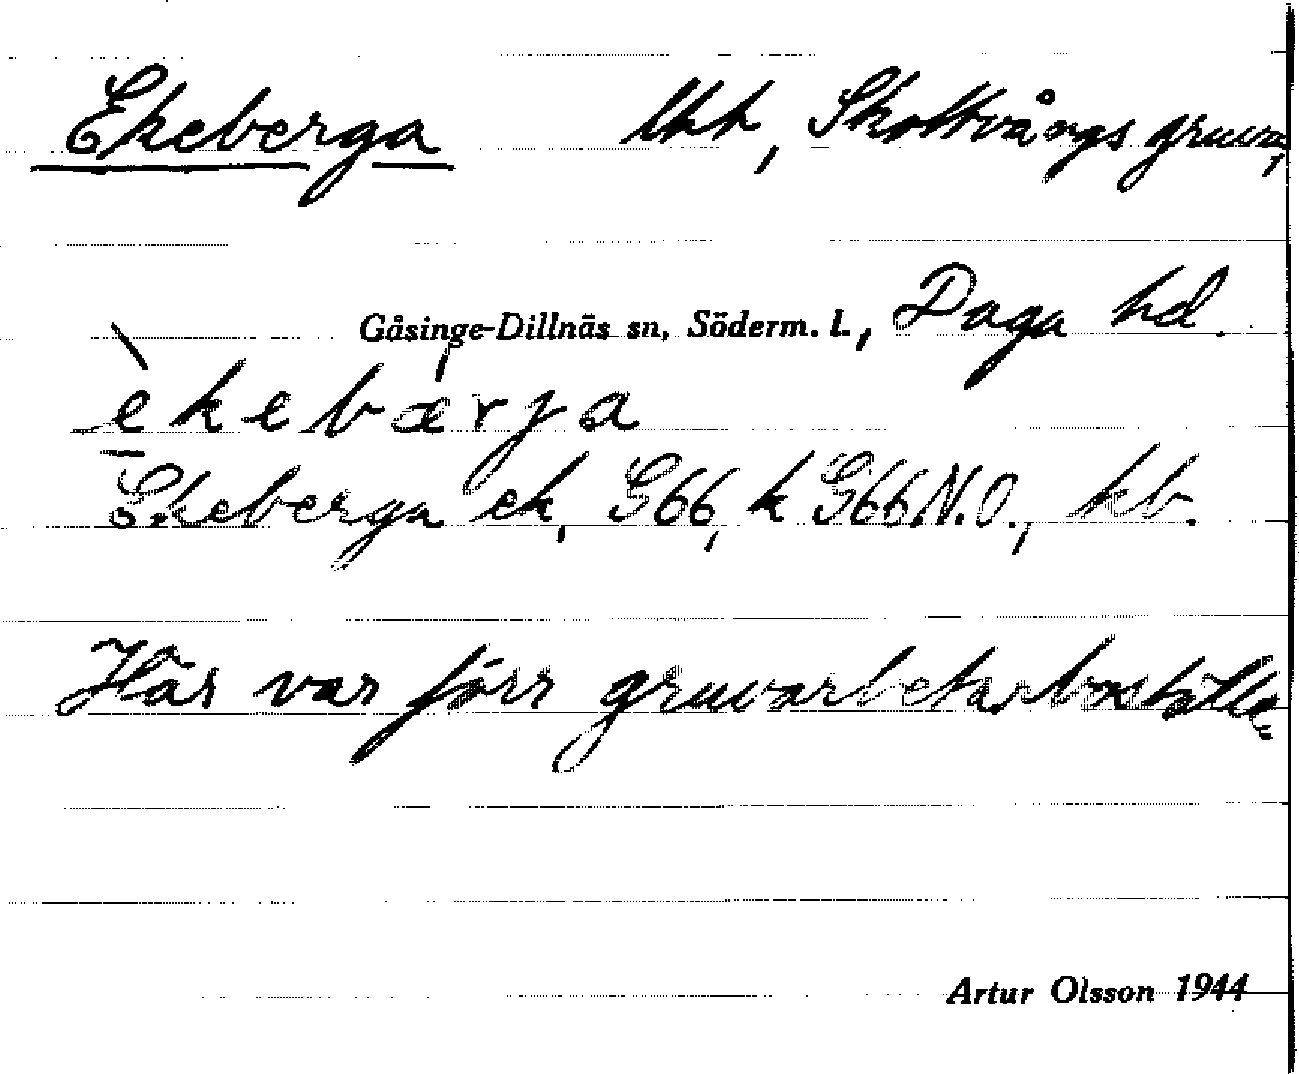 Ekeberga lht, Skottvångs gruva,
Gåsinge-Dillnäs sn, Söderm. l., Daga hd.
èkebærja
Ekeberga ek, G66, k G66 N.O., kb.
Här var förr gruvarbetarboställe
Artur Olsson 1944